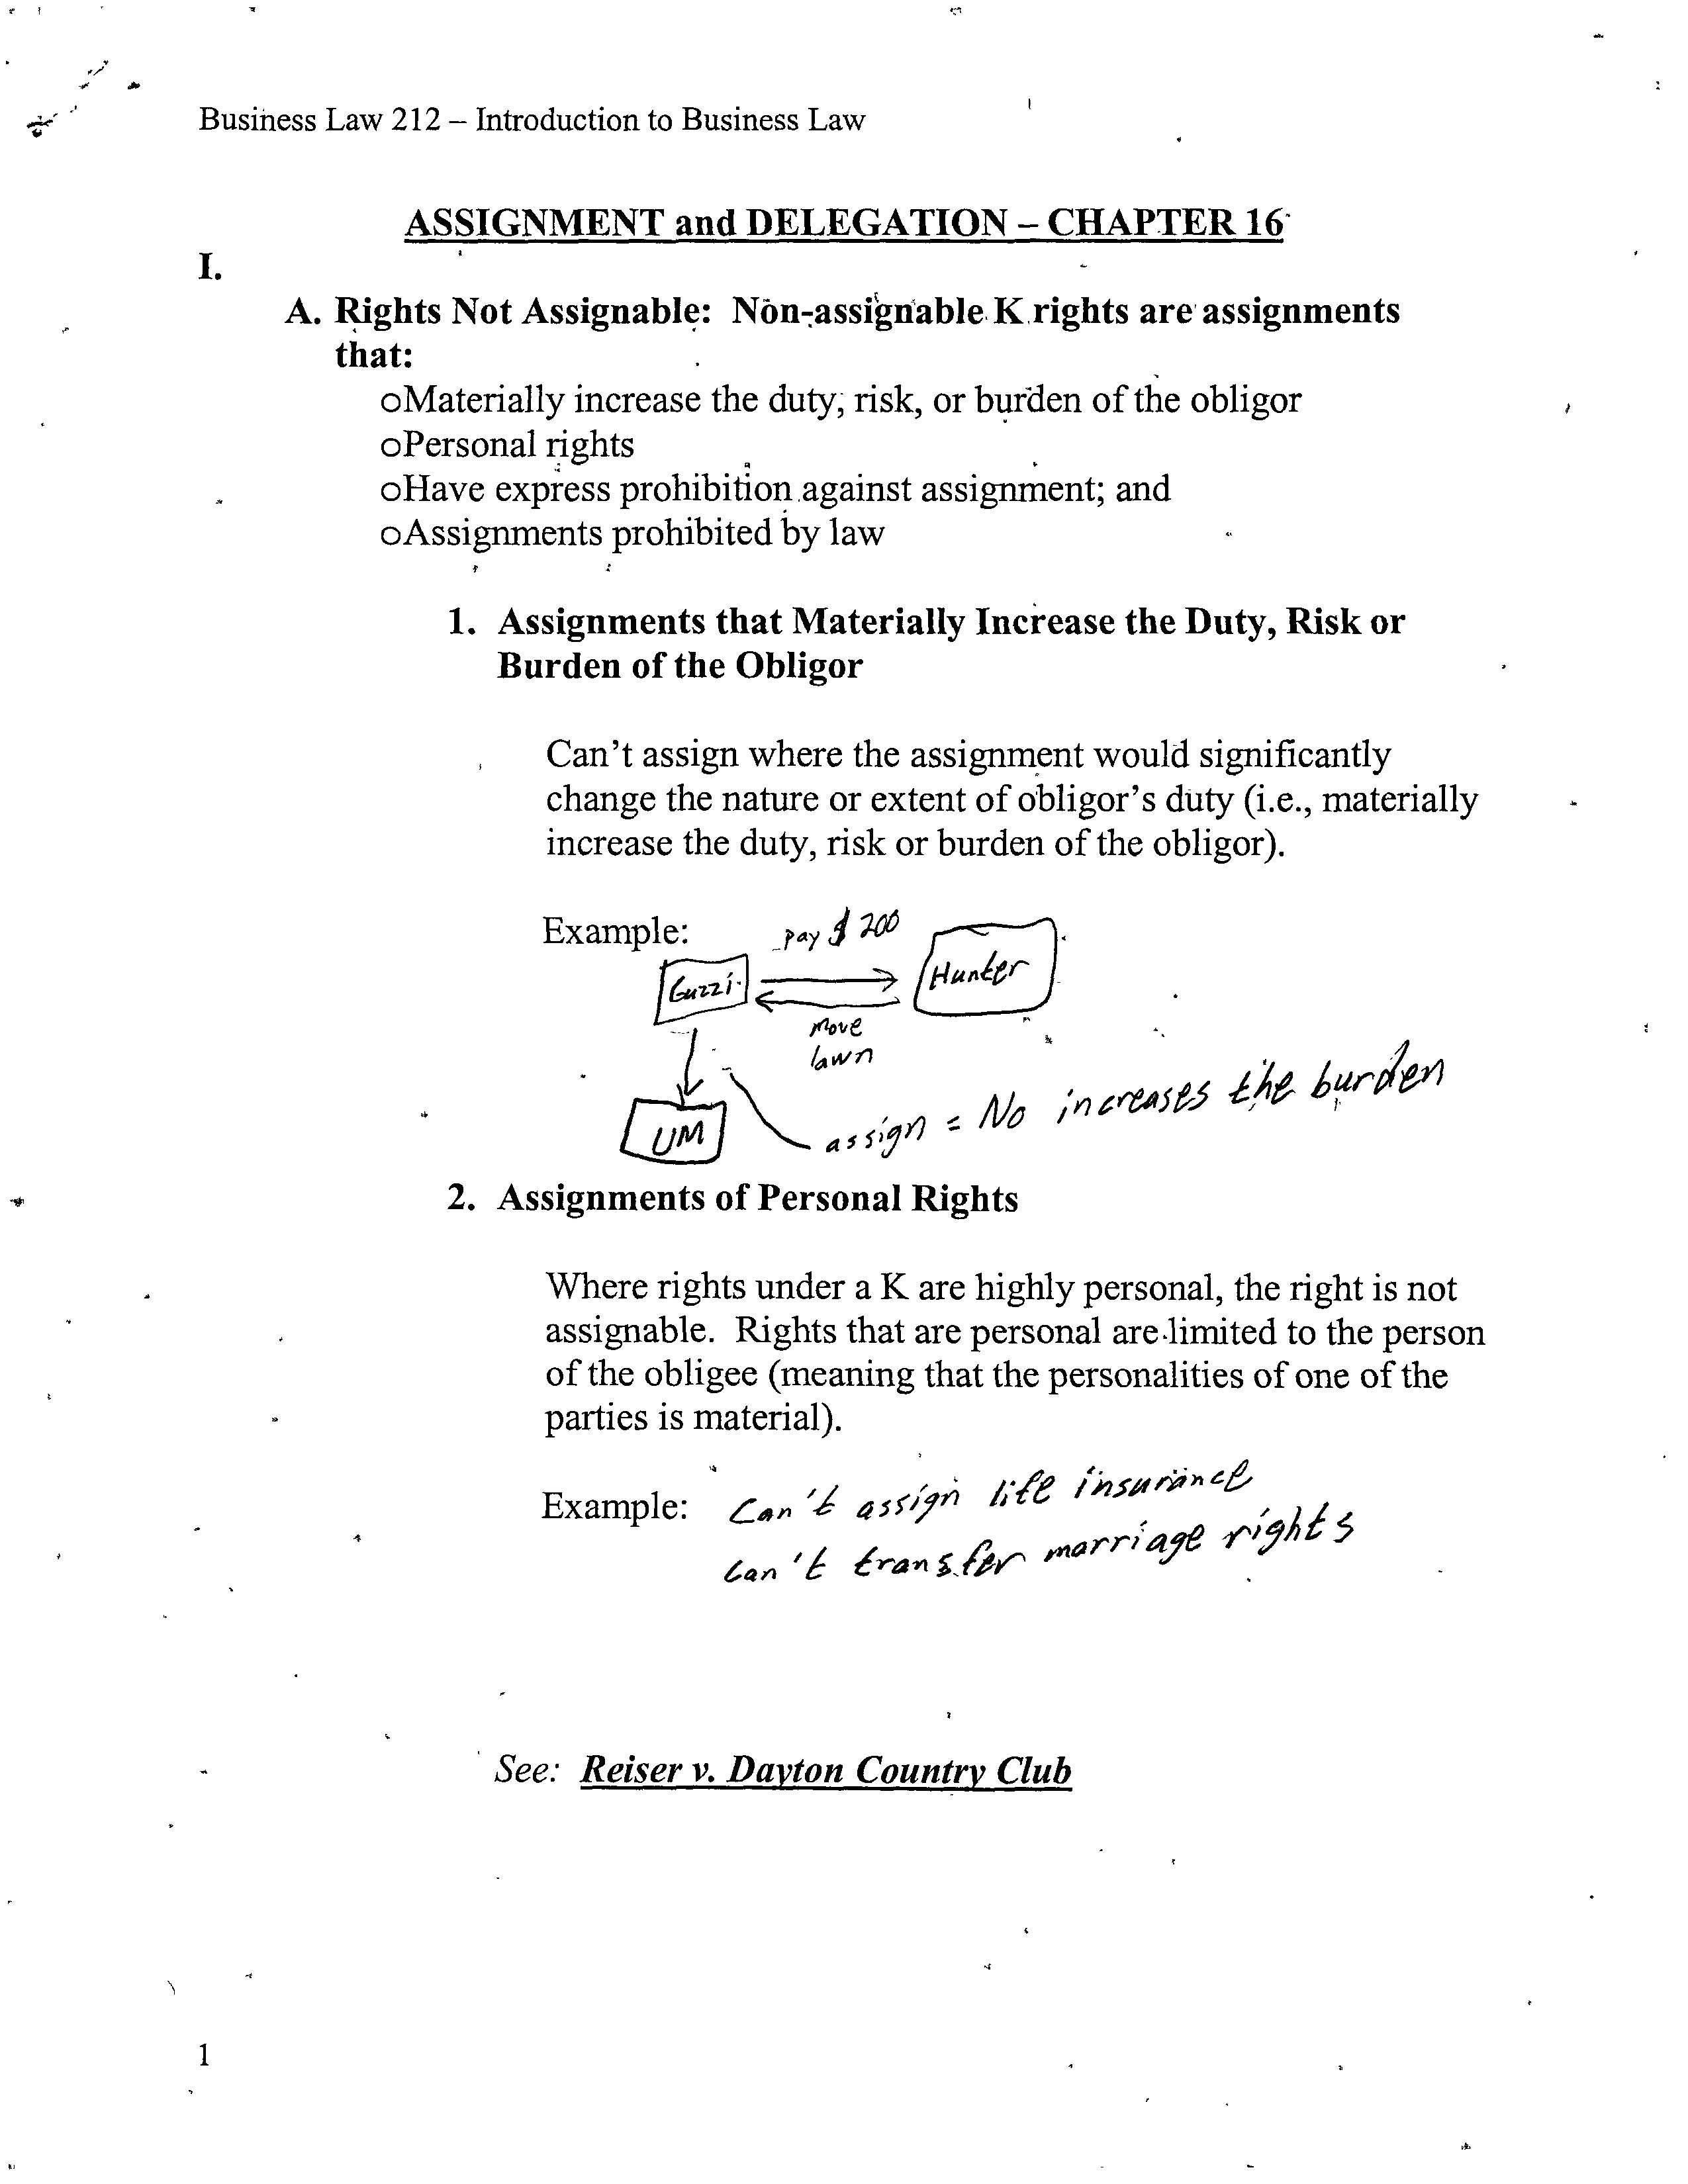 Business Law 212 – Introduction to Business Law
ASSIGNMENT and DELEGATION – CHAPTER 16
I.
A. Rights Not Assignable: Non-assignable K rights are assignments
that:
oMaterially increase the duty, risk, or burden of the obligor
oPersonal rights
oHave express prohibition against assignment; and
oAssignments prohibited by law
1. Assignments that Materially Increase the Duty, Risk or
Burden of the Obligor
Can't assign where the assignment would significantly
change the nature or extent of obligor's duty (i.e., materially
increase the duty, risk or burden of the obligor).
Example: pay $ 200
Guzzi Hunter
move
lawn
UM assign = No increases the burden
2. Assignments of Personal Rights
Where rights under a K are highly personal, the right is not
assignable. Rights that are personal are limited to the person
of the obligee (meaning that the personalities of one of the
parties is material).
Example: Can't assign life insurance
Can't transfer marriage rights
See: Reiser v. Dayton Country Club
1